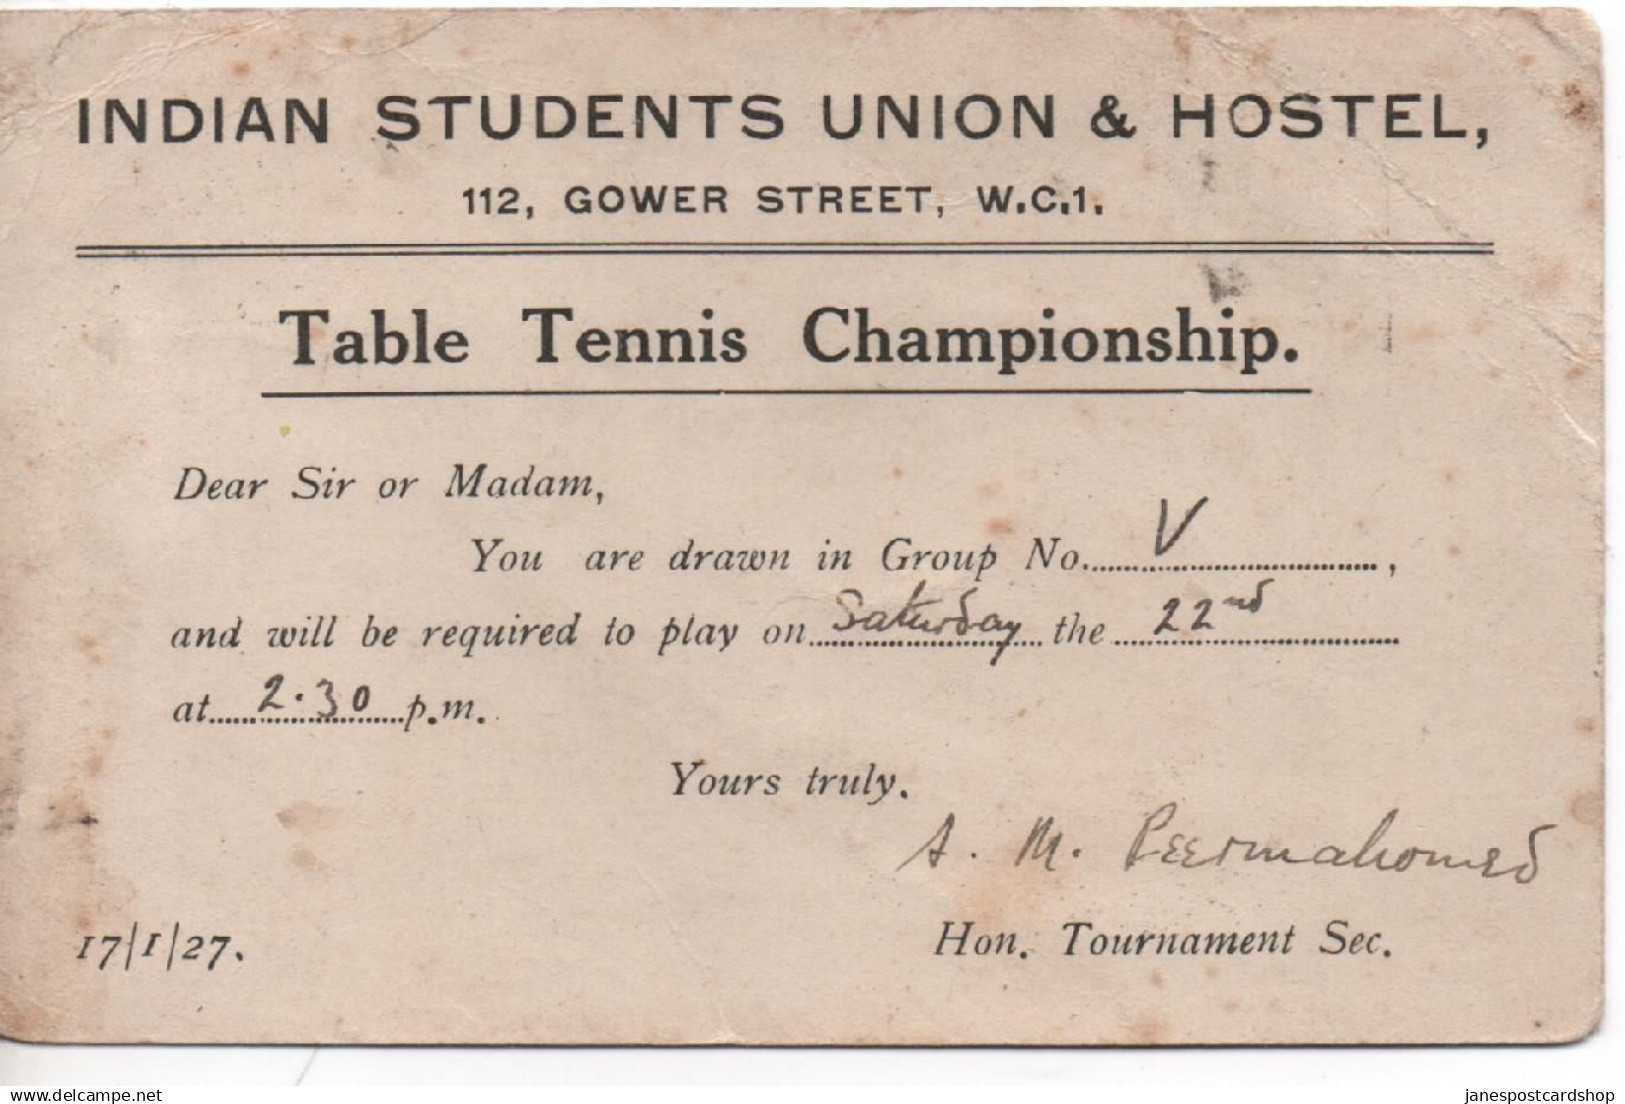 INDIAN STUDENTS UNION & HOSTEL,
112, GOWER STREET, W.C.1.
Table Tennis Championship.
Dear Sir or Madam,
You are drawn in Group No. V ,
and will be required to play on Saturday the 22nd
at 2.30 p.m.
Yours truly.
A. M. Peermahomed
17/1/27.
Hon. Tournament Sec.
delcampe.net
janespostcardshop